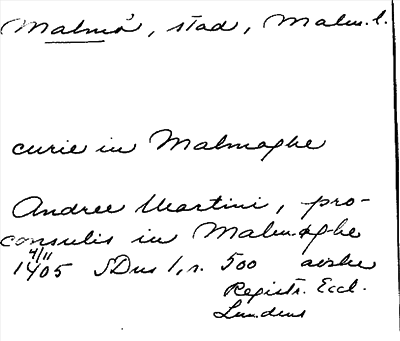 Malmö, stad, Malm. l.
curie in Malmoghe
Andree Martini, pro-
consulis in Malmøghe
4/11
1405 SDns 1, s. 500 avskr
Registr. Eccl.
Lundens